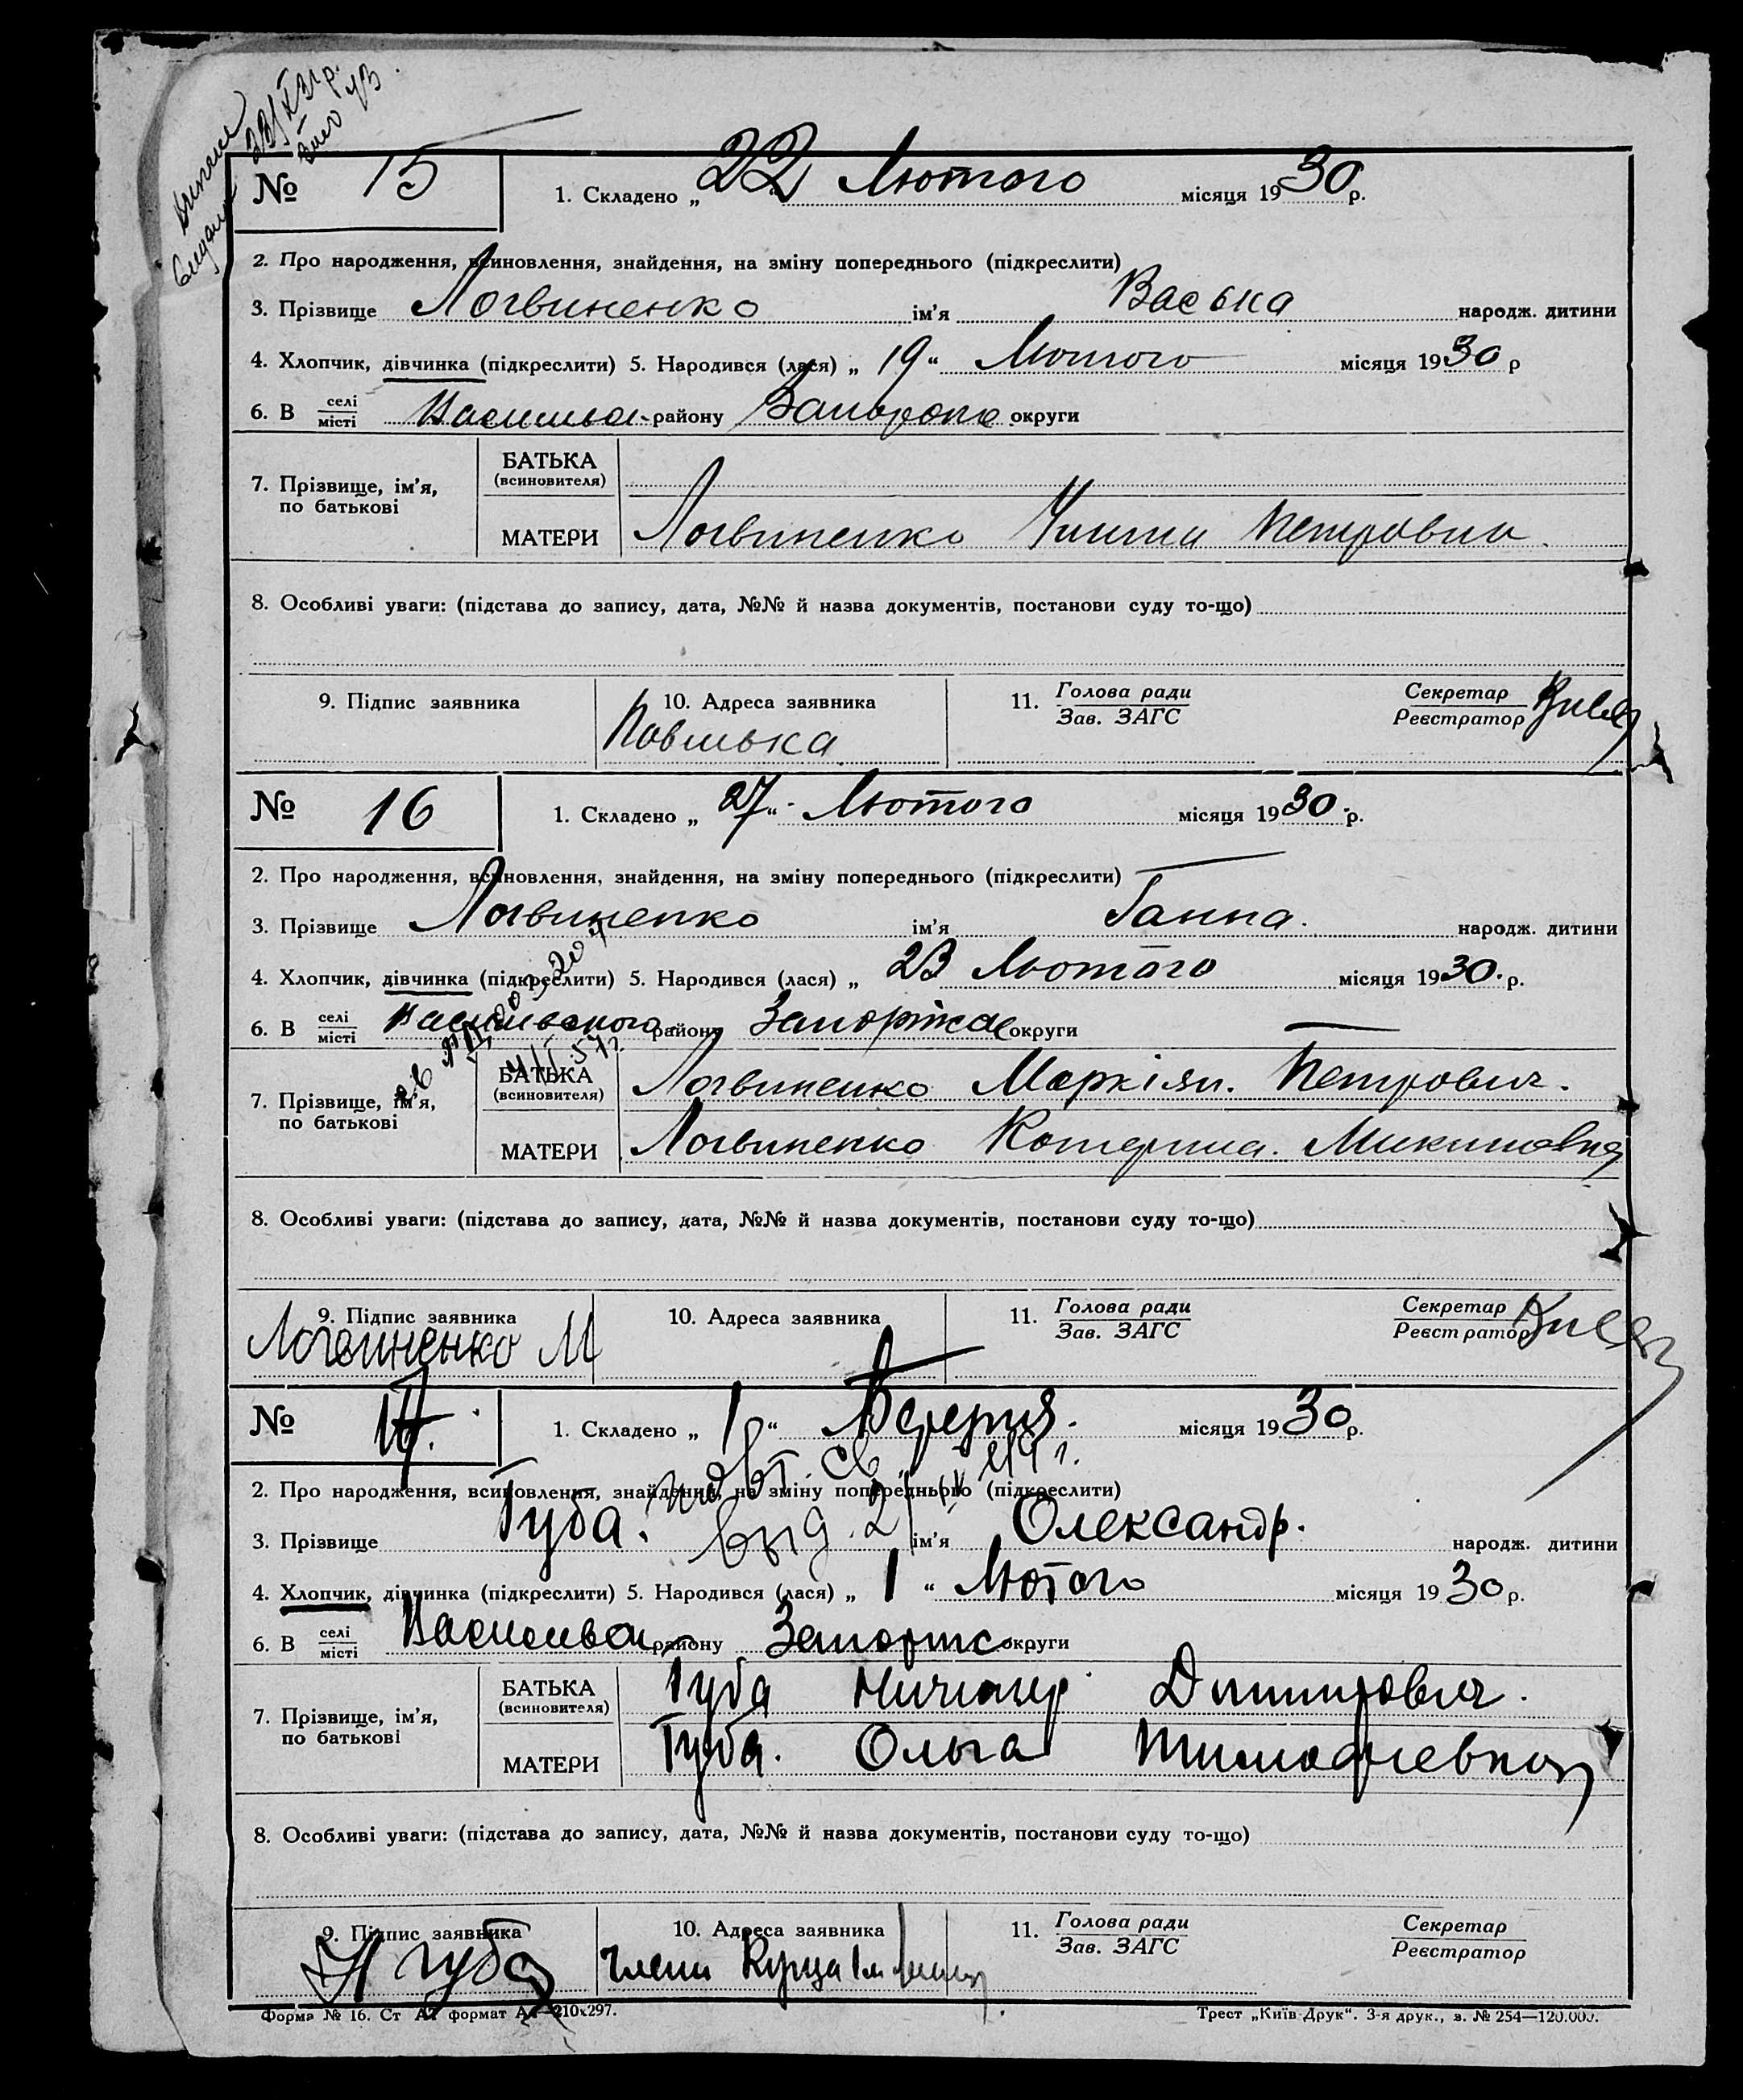 № 15 1. Складено „ 22 " Лютого місяця 1930 р.
2. Про народження, всиновлення, знайдення, на зміну попереднього (підкреслити)
3. Прізвище Логвиненко ім'я Васька народж. дитини
4. Хлопчик, дівчинка (підкреслити) 5. Народився (лася) „ 19 " Лютого місяця 1930 р
6. В селі місті району округи
БАТЬКА
(всиновителя)
7. Прізвище, ім'я,
по батькові
МАТЕРИ Логвиненко Петровна
8. Особливі уваги: (підстава до запису, дата, №№ й назва документів, постанови суду то-що)
9. Підпис заявника 10. Адреса заявника 11. Голова ради Зав. ЗАГС Секретар Реєстратор
№ 16 1. Складено „ 27 " Лютого місяця 1930 р.
2. Про народження, всиновлення, знайдення, на зміну попереднього (підкреслити)
3. Прізвище Логвиненко ім'я Ганна. народж. дитини
4. Хлопчик, дівчинка (підкреслити) 5. Народився (лася) „ 23 Лютого місяця 1930 р.
6. В селі місті Васильвського району округи
БАТЬКА Логвиненко Маркіян. Петрович.
(всиновителя)
7. Прізвище, ім'я,
по батькові
МАТЕРИ Логвиненко Катерина.
8. Особливі уваги: (підстава до запису, дата, №№ й назва документів, постанови суду то-що)
9. Підпис заявника 10. Адреса заявника 11. Голова ради Зав. ЗАГС Секретар Реєстратор
Логвиненко М
№ 17. 1. Складено „ 1 " Березня. місяця 1930 р.
2. Про народження, всиновлення, знайдення, на зміну попереднього (підкреслити)
3. Прізвище Губа. ім'я Олександр. народж. дитини
4. Хлопчик, дівчинка (підкреслити) 5. Народився (лася) „ 1 " Лютого місяця 1930 р.
6. В селі місті району округи
БАТЬКА Губа Дмитрович.
(всиновителя)
7. Прізвище, ім'я,
по батькові
МАТЕРИ Губа. Ольга Тимофіевна
8. Особливі уваги: (підстава до запису, дата, №№ й назва документів, постанови суду то-що)
9. Підпис заявника 10. Адреса заявника 11. Голова ради Зав. ЗАГС Секретар Реєстратор
Н Губа
Форма № 16. Ст А7 формат А4—210х297. Трест „Київ-Друк“. 3-я друк., з. № 254—120.000.